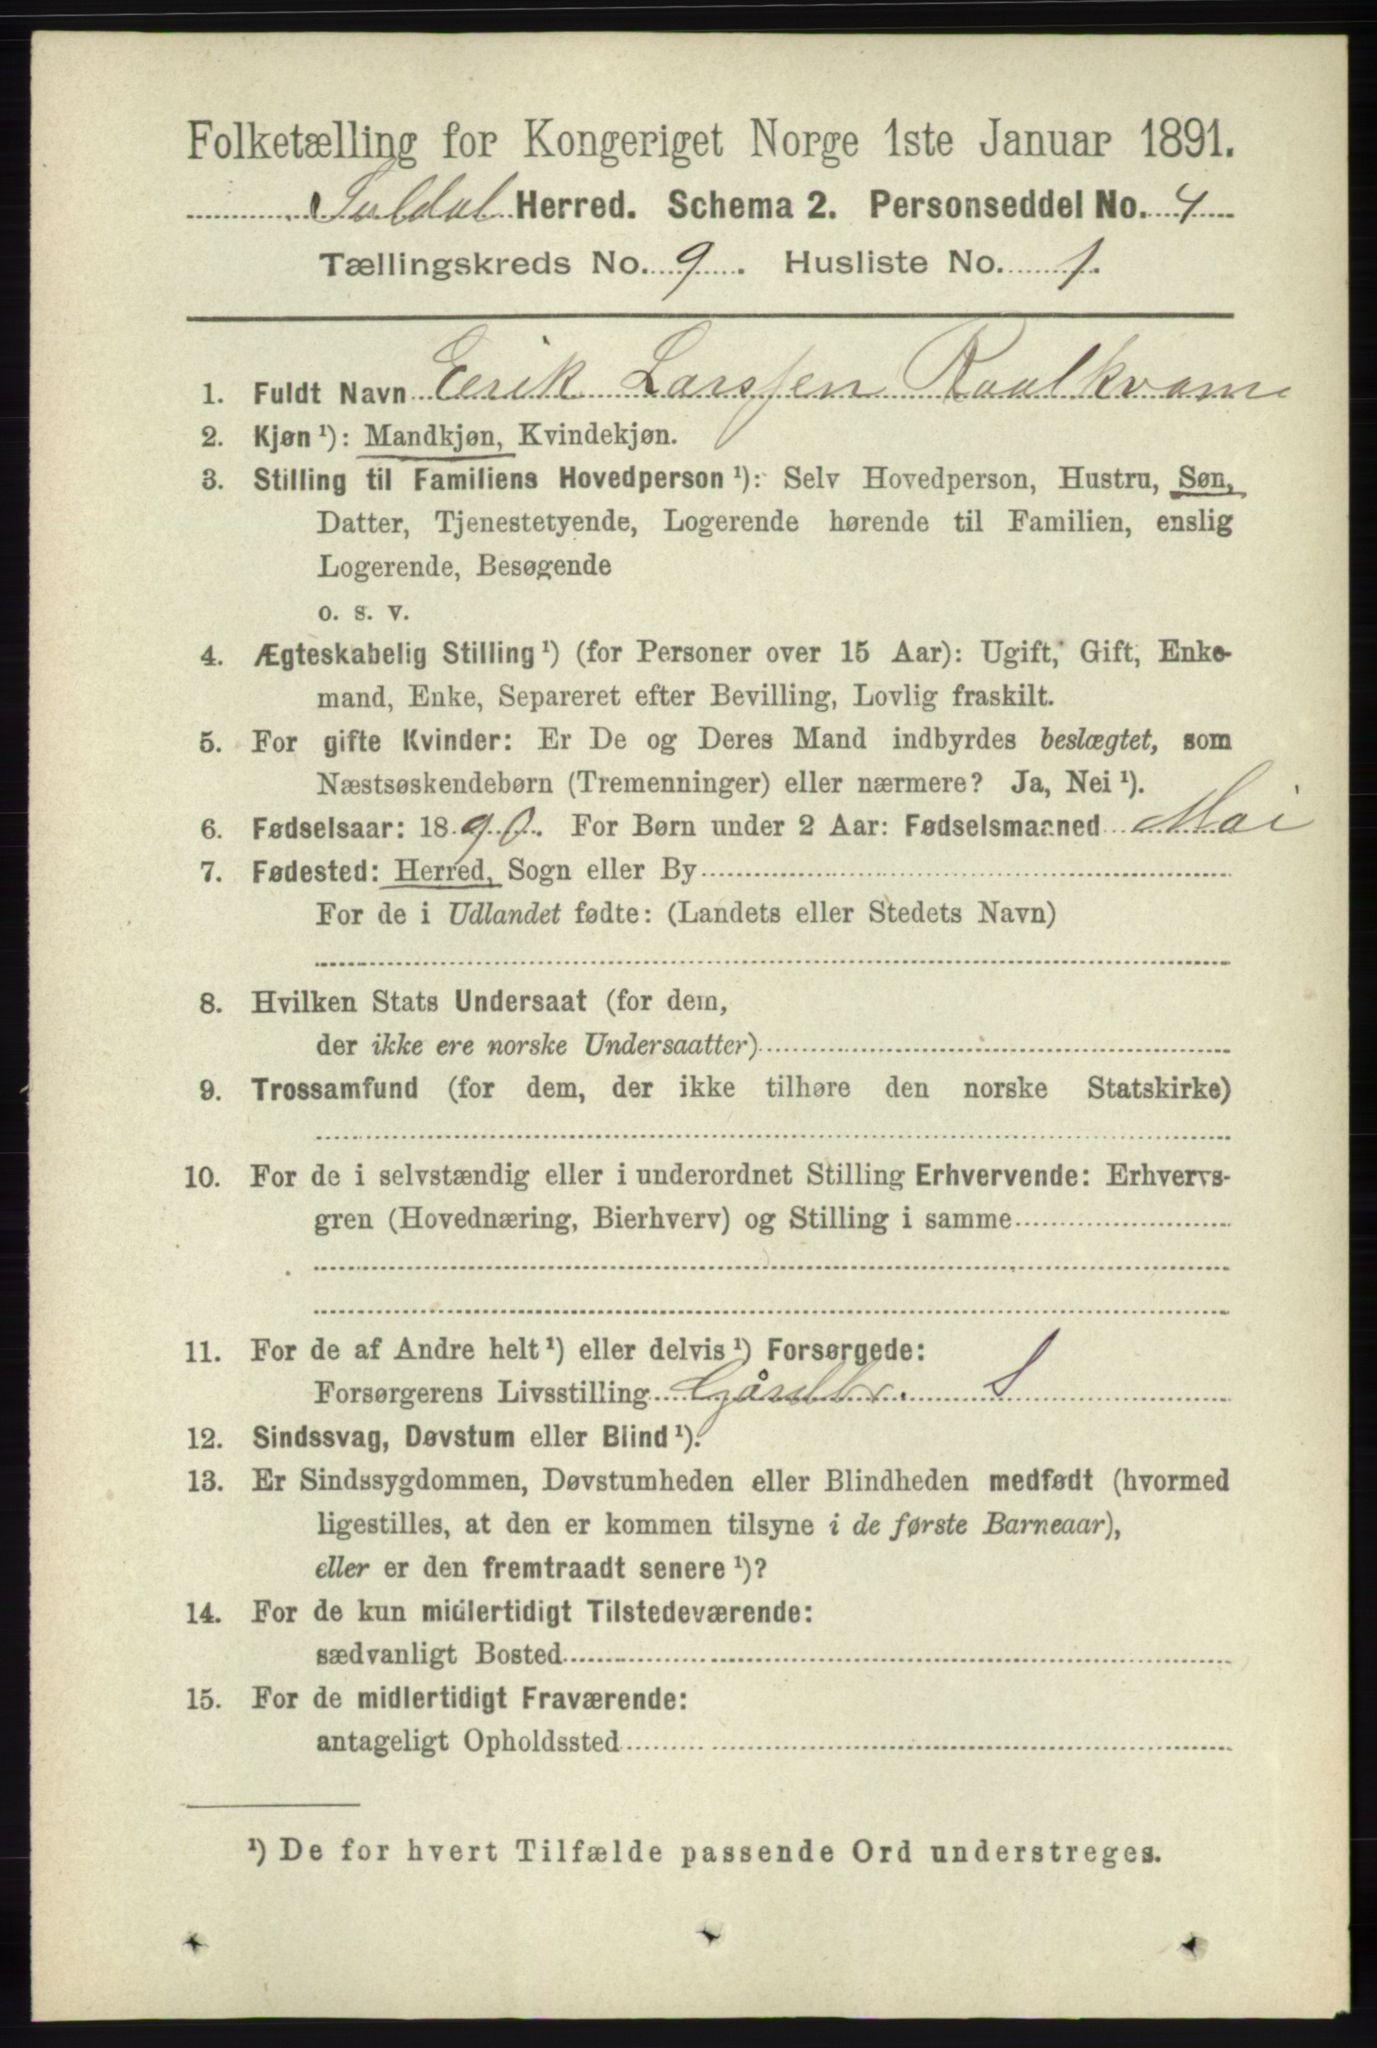 Folketælling for Kongeriget Norge 1ste Januar 1891.
Suldal Herred. Schema 2. Personseddel No. 4
Tællingskreds No. 9. Husliste No. 1.
1. Fuldt Navn Eerik Larssen Raalkvam
2. Kjøn ¹): Mandkjøn, Kvindekjøn.
3. Stilling til Familiens Hovedperson ¹): Selv Hovedperson, Hustru, Søn,
Datter, Tjenestetyende, Logerende hørende til Familien, enslig
Logerende, Besøgende
o. s. v.
4. Ægteskabelig Stilling ¹) (for Personer over 15 Aar): Ugift, Gift, Enke-
mand, Enke, Separeret efter Bevilling, Lovlig fraskilt.
5. For gifte Kvinder: Er De og Deres Mand indbyrdes beslægtet, som
Næstsøskendebørn (Tremenninger) eller nærmere? Ja, Nei ¹).
6. Fødselsaar: 1890. For Børn under 2 Aar: Fødselsmaaned Mai
7. Fødested: Herred, Sogn eller By
For de i Udlandet fødte: (Landets eller Stedets Navn)
8. Hvilken Stats Undersaat (for dem,
der ikke ere norske Undersaatter)
9. Trossamfund (for dem, der ikke tilhøre den norske Statskirke)
10. For de i selvstændig eller i underordnet Stilling Erhvervende: Erhvervs-
gren (Hovednæring, Bierhverv) og Stilling i samme
11. For de af Andre helt ¹) eller delvis ¹) Forsørgede:
Forsørgerens Livsstilling Gårdbr. S
12. Sindssvag, Døvstum eller Blind ¹).
13. Er Sindssygdommen, Døvstumheden eller Blindheden medfødt (hvormed
ligestilles, at den er kommen tilsyne i de første Barneaar),
eller er den fremtraadt senere ¹)?
14. For de kun midlertidigt Tilstedeværende:
sædvanligt Bosted
15. For de midlertidigt Fraværende:
antageligt Opholdssted
¹) De for hvert Tilfælde passende Ord understreges.